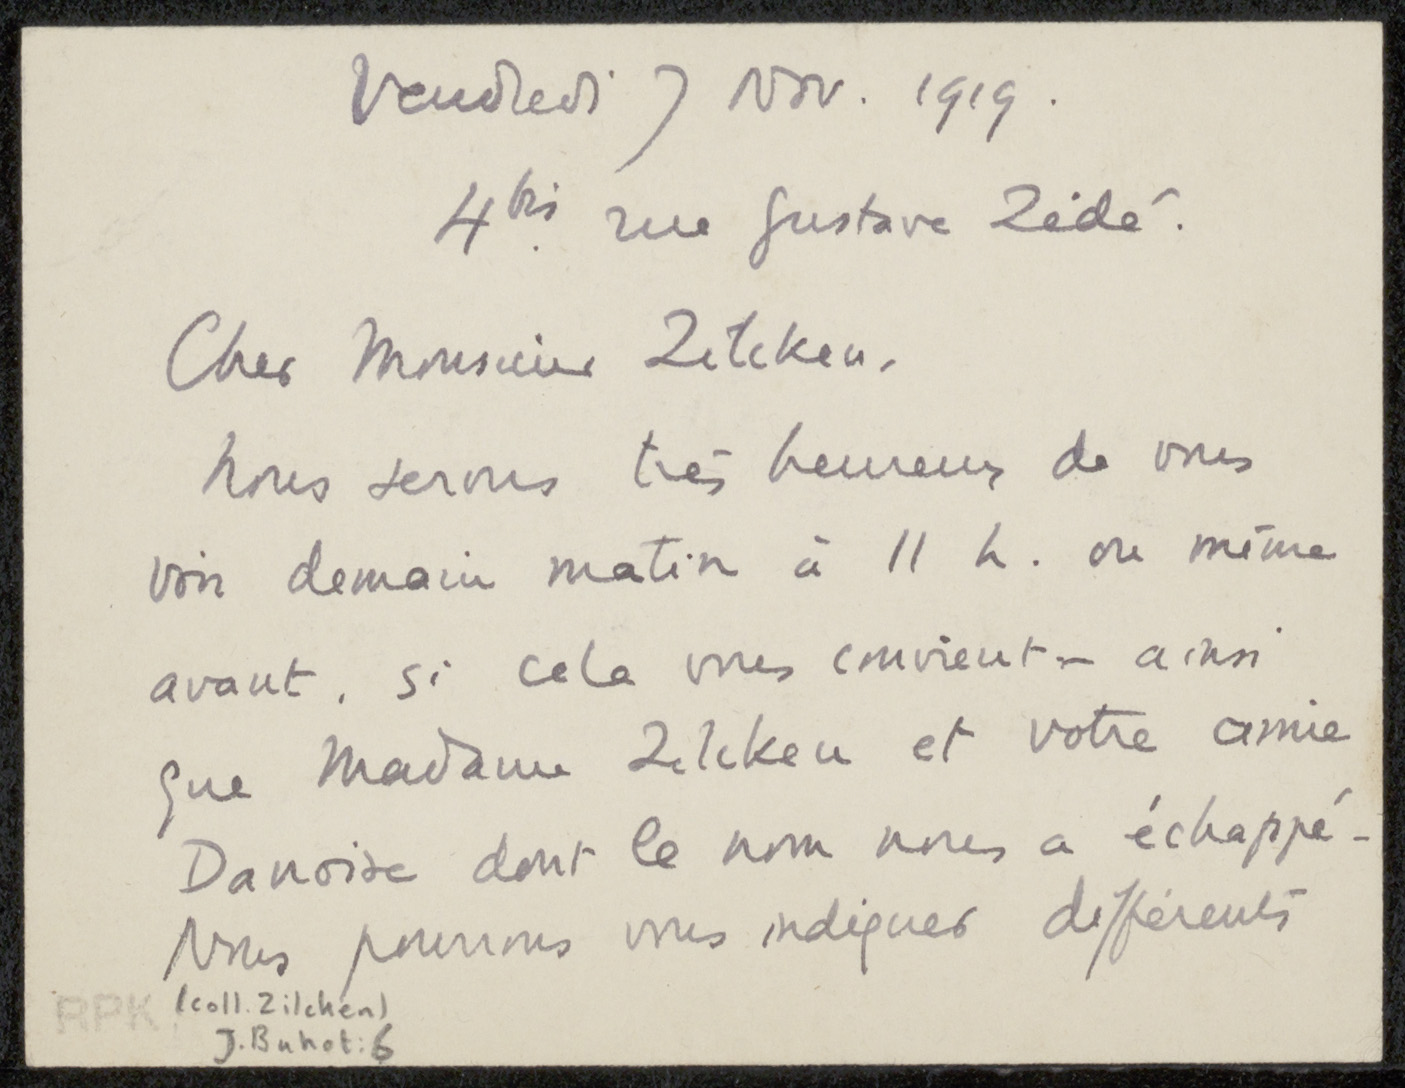 Vendredi 7 Nov. 1919.
4 bis rue Gustave Zédé.
Cher Monsieur Zilcken,
Nous serons très heureux de vous
voir demain matin à 11 h. ou même
avant, si cela vous convient – ainsi
que Madame Zilcken et votre amie
Danoise dont le nom nous a échappé –
Nous pourrons vous indiquer différents
RPK (coll. Zilcken)
J. Buhot: 6